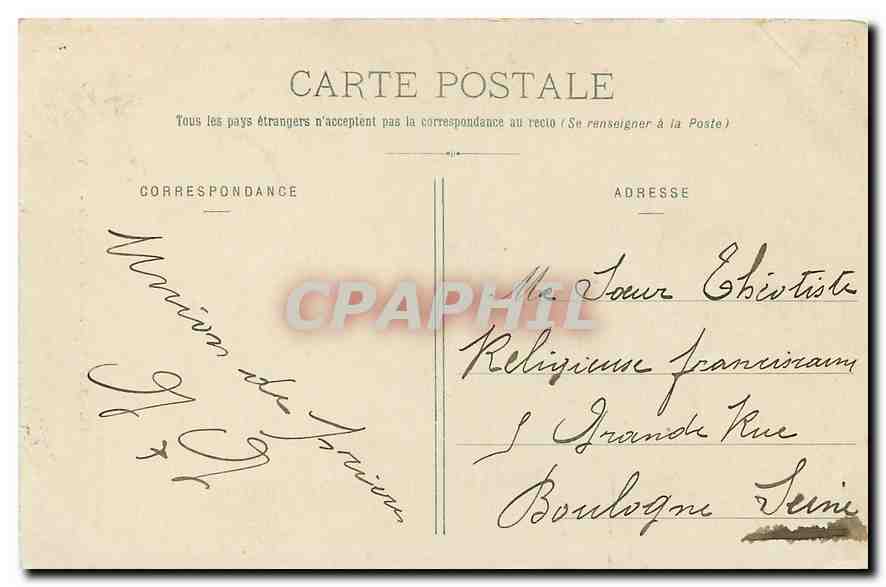 CARTE POSTALE
Tous les pays étrangers n'acceptent pas la correspondance au recto (Se renseigner à la Poste)
CORRESPONDANCE
Union de Prières
ADRESSE
Me Sœur Théotiste
Religieuse franciscaine
5 Grande Rue
Boulogne Seine
CPAPHIL